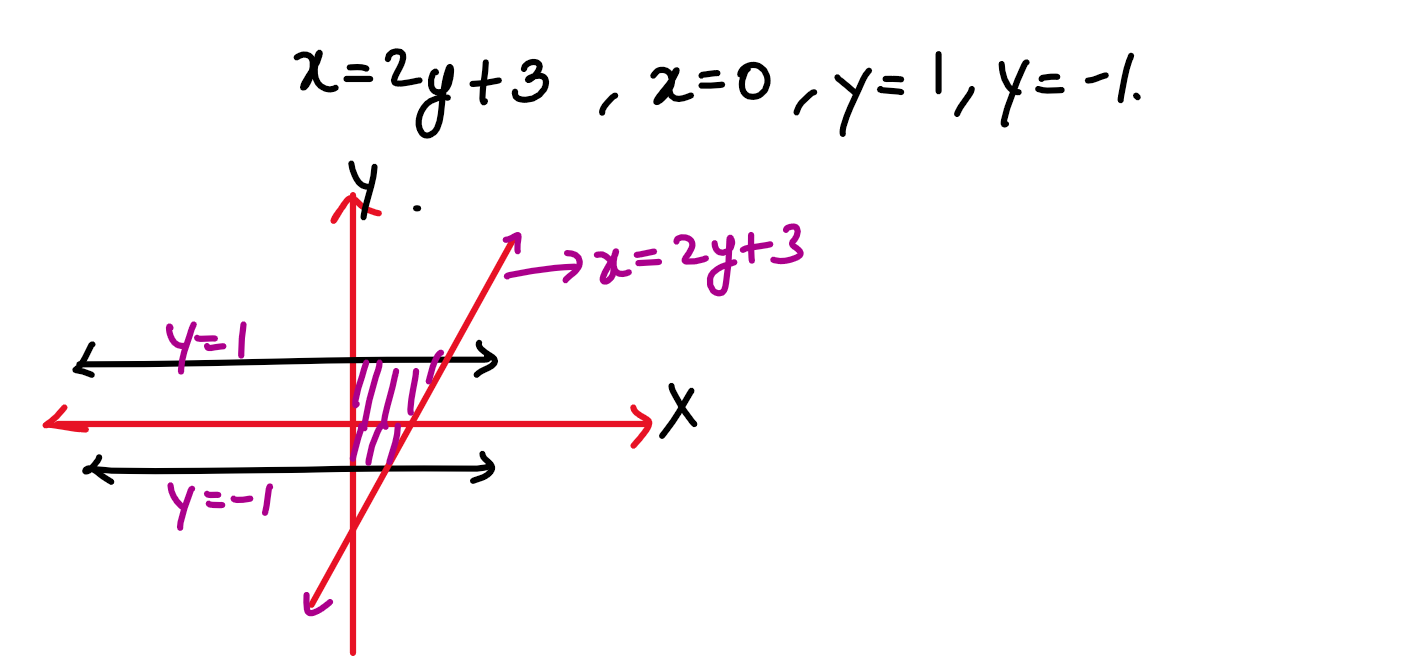 x=2y+3 , x=0, y=1, y=-1.
Y
x=2y+3
y=1
X
y=-1